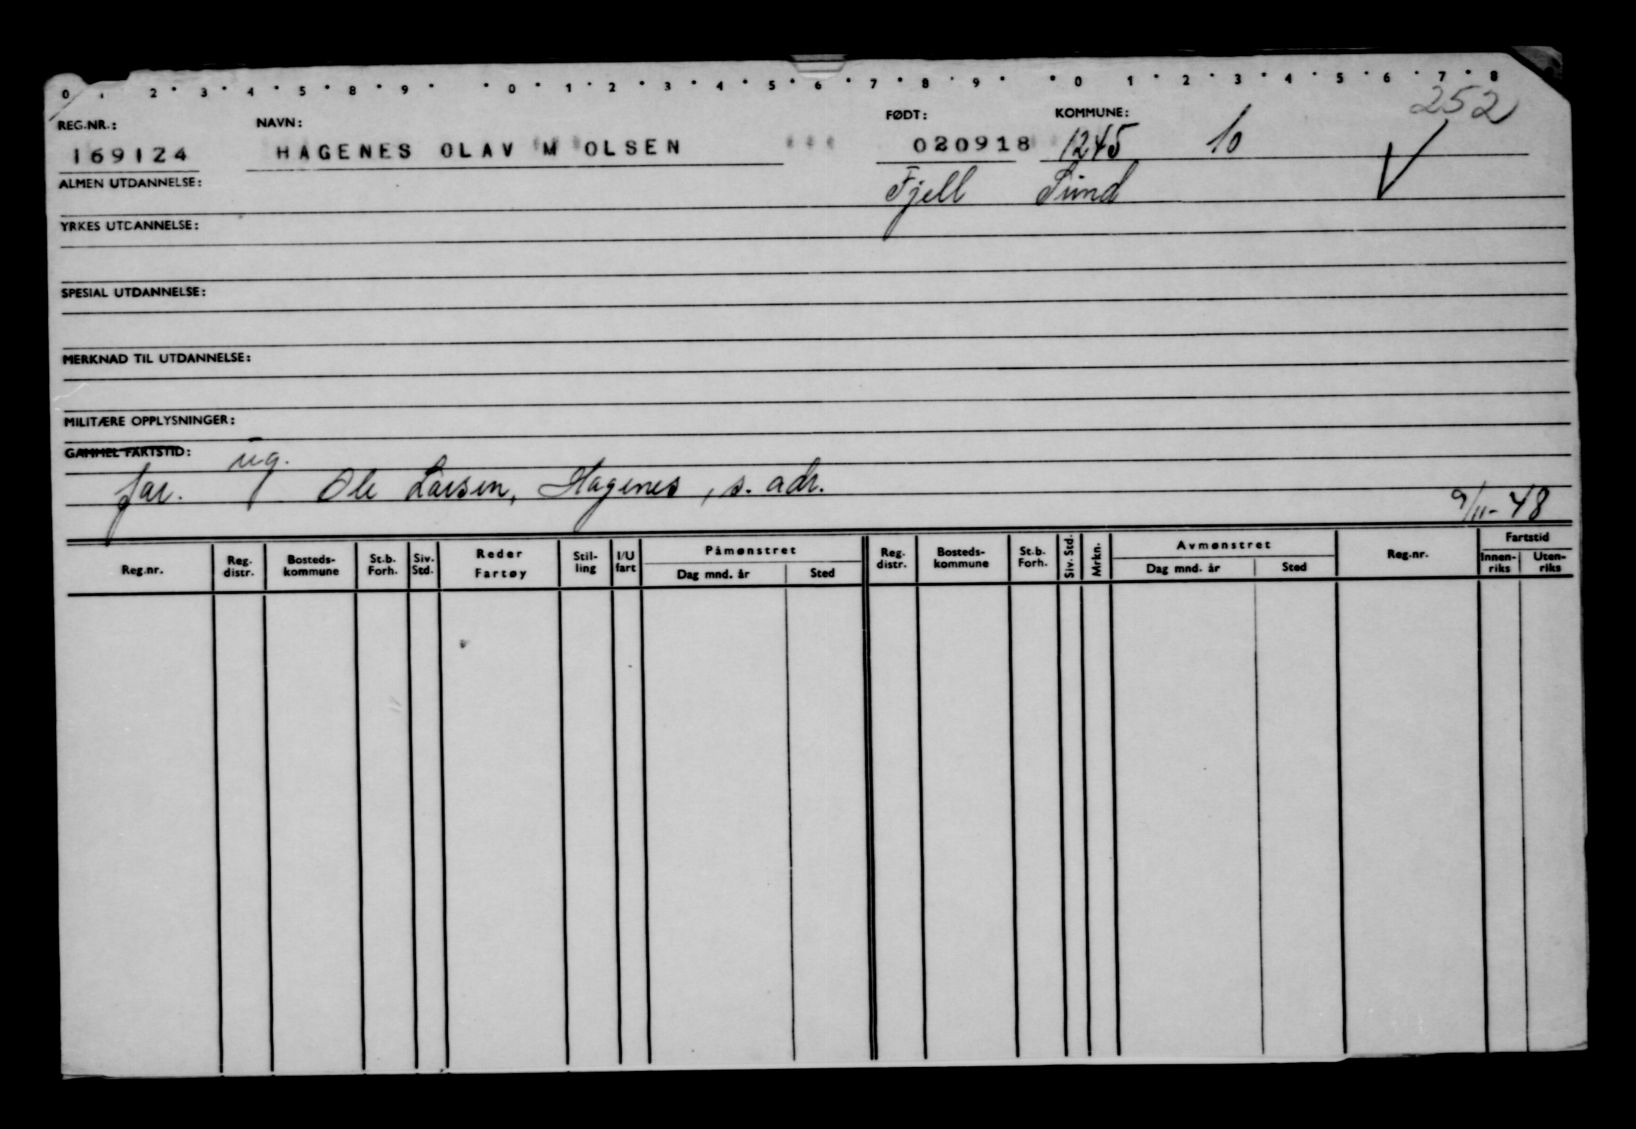 0 1 2 3 4 5 8 9 0 1 2 3 4 5 6 7 8 9 0 1 2 3 4 5 6 7 8
252
REG.NR.: NAVN: FØDT: KOMMUNE:
169124 HAGENES OLAV M OLSEN 020918 1245 10
ALMEN UTDANNELSE: Fjell Sund
YRKES UTDANNELSE:
SPESIAL UTDANNELSE:
MERKNAD TIL UTDANNELSE:
MILITÆRE OPPLYSNINGER:
GAMMEL FARTSTID: ug.
far. Ole Larsen, Hagenes, s. adr.
9/11-48
Reg.nr. Reg. distr. Bosteds-kommune St.b. Forh. Siv. Std. Reder Fartøy Stil-ling I/U fart Påmønstret Dag mnd. år Sted Reg. distr. Bosteds-kommune St.b. Forh. Siv. Std. Mrkn. Avmønstret Dag mnd. år Sted Reg.nr. Fartstid Innen-riks Uten-riks